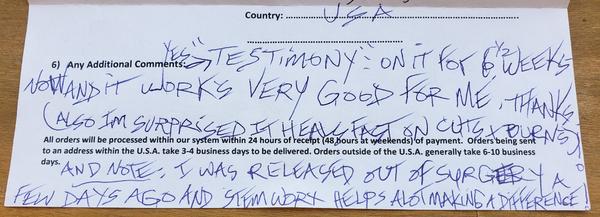 Country: USA
6) Any Additional Comments: YES → "TESTIMONY": ON IT FOR 6 1/2 WEEKS
NOW AND IT WORKS VERY GOOD FOR ME, THANKS.
(ALSO IM SURPRISED IT HEALS FAST ON CUTS & BURNS)
All orders will be processed within our system within 24 hours of receipt (48 hours at weekends) of payment. Orders being sent
to an address within the U.S.A. take 3-4 business days to be delivered. Orders outside of the U.S.A. generally take 6-10 business
days.
AND NOTE: I WAS RELEASED OUT OF SURGERY A
FEW DAYS AGO AND STEMWORX HELPS ALOT MAKING A DIFFERENCE!